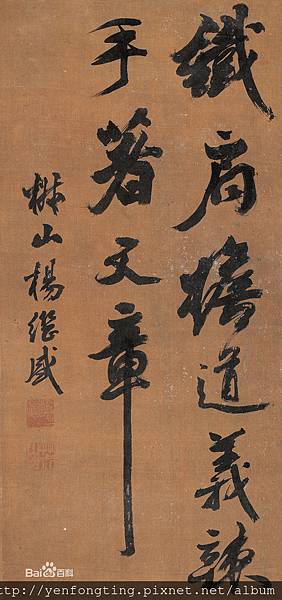 鐵肩擔道義辣
手著文章
椒山楊繼盛
Bai百科
http://yenfongting.pixnet.net/album